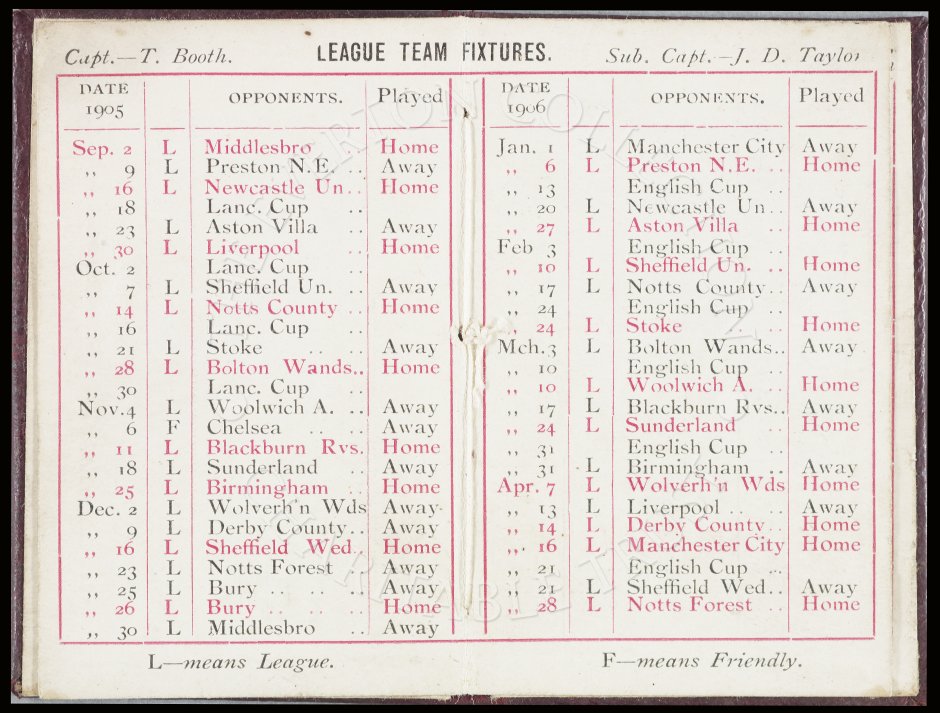 Capt.—T. Booth. LEAGUE TEAM FIXTURES. Sub. Capt.—J. D. Taylor
DATE 1905 OPPONENTS. Played
Sep. 2 L Middlesbro Home
,, 9 L Preston N.E. .. Away
,, 16 L Newcastle Un.. Home
,, 18 Lanc. Cup ..
,, 23 L Aston Villa .. Away
,, 30 L Liverpool .. Home
Oct. 2 Lanc. Cup ..
,, 7 L Sheffield Un. .. Away
,, 14 L Notts County .. Home
,, 16 Lanc. Cup ..
,, 21 L Stoke .. .. Away
,, 28 L Bolton Wands.. Home
,, 30 Lanc. Cup ..
Nov. 4 L Woolwich A. .. Away
,, 6 F Chelsea .. .. Away
,, 11 L Blackburn Rvs. Home
,, 18 L Sunderland .. Away
,, 25 L Birmingham .. Home
Dec. 2 L Wolverh'n Wds Away
,, 9 L Derby County.. Away
,, 16 L Sheffield Wed.. Home
,, 23 L Notts Forest .. Away
,, 25 L Bury .. .. .. Away
,, 26 L Bury .. .. .. Home
,, 30 L Middlesbro .. Away
L—means League.
DATE 1906 OPPONENTS. Played
Jan. 1 L Manchester City Away
,, 6 L Preston N.E. .. Home
,, 13 English Cup ..
,, 20 L Newcastle Un.. Away
,, 27 L Aston Villa .. Home
Feb 3 English Cup ..
,, 10 L Sheffield Un. .. Home
,, 17 L Notts County.. Away
,, 24 English Cup ..
,, 24 L Stoke .. Home
Mch. 3 L Bolton Wands.. Away
,, 10 English Cup ..
,, 10 L Woolwich A. .. Home
,, 17 L Blackburn Rvs.. Away
,, 24 L Sunderland .. Home
,, 31 English Cup ..
,, 31 L Birmingham .. Away
Apr. 7 L Wolverh'n Wds Home
,, 13 L Liverpool .. .. Away
,, 14 L Derby County.. Home
,, 16 L Manchester City Home
,, 21 English Cup ..
,, 21 L Sheffield Wed.. Away
,, 28 L Notts Forest .. Home
F—means Friendly.